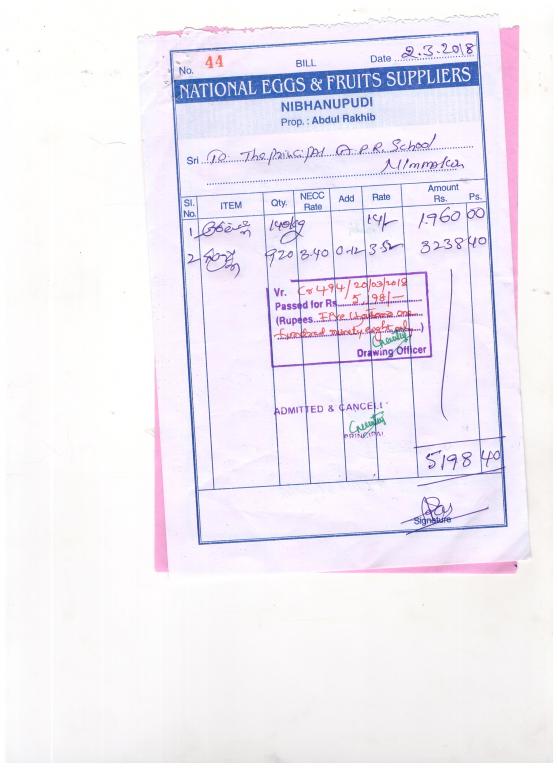 No. 44 BILL Date 2.3.2018
NATIONAL EGGS & FRUITS SUPPLIERS
NIBHANUPUDI
Prop. : Abdul Rakhib
Sri To The Principal A.P.R. School
Nimmakuru
Sl. No. ITEM Qty. NECC Rate Add Rate Amount Rs. Ps.
1 140kg 14/- 1960 00
2 920 3.40 0.12 3.52 3238 40
Vr. Cr 494/20/03/2018
Passed for Rs. 5198/-
(Rupees Five thousand one
hundred ninety eight only)
Drawing Officer
ADMITTED & CANCELL
PRINCIPAL
5198 40
Signature